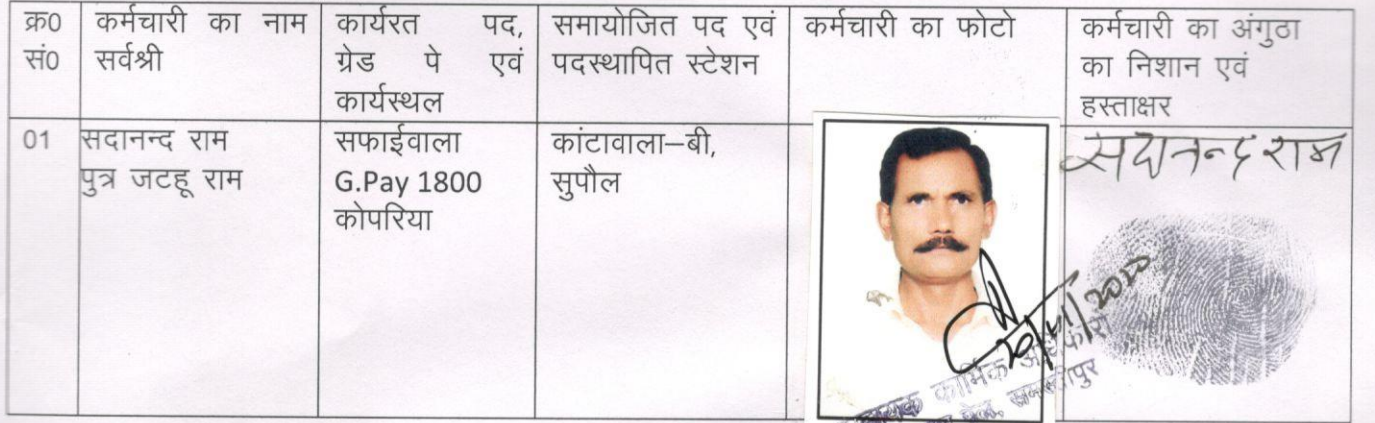 क्र0 सं0
कर्मचारी का नाम
सर्वश्री
कार्यरत पद,
ग्रेड पे एवं
कार्यस्थल
समायोजित पद एवं
पदस्थापित स्टेशन
कर्मचारी का फोटो
कर्मचारी का अंगुठा
का निशान एवं
हस्ताक्षर
01
सदानन्द राम
पुत्र जटहू राम
सफाईवाला
G.Pay 1800
कोपरिया
कांटावाला–बी,
सुपौल
सदानन्द राम
कार्मिक अधिकारी
समस्तीपुर